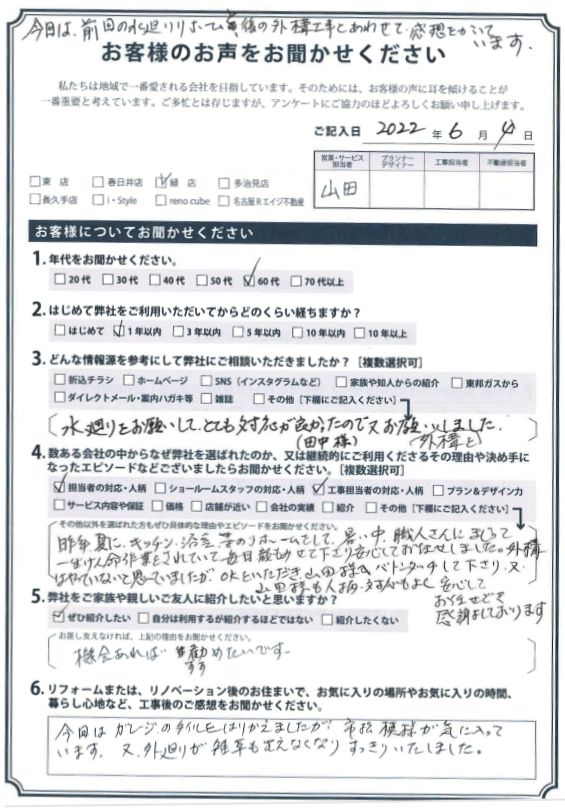 今日は、前回の水廻りリホーム後の外構工事とあわせて感想をかいて
います.
お客様のお声をお聞かせください
私たちは地域で一番愛される会社を目指しています。そのためには、お客様の声に耳を傾けることが
一番重要と考えています。ご多忙とは存じますが、アンケートにご協力のほどよろしくお願い申し上げます。
ご記入日 2022 年 6 月 4 日
営業・サービス担当者 プランナーデザイナー 工事担当者 不動産担当者
山田
□東 店 □春日井店 ☑緑 店 □多治見店
□長久手店 □i・Style □reno cube □名古屋Rエイジ不動産
お客様についてお聞かせください
1. 年代をお聞かせください。
□20代 □30代 □40代 □50代 ☑60代 □70代以上
2. はじめて弊社をご利用いただいてからどのくらい経ちますか？
□はじめて ☑1年以内 □3年以内 □5年以内 □10年以内 □10年以上
3. どんな情報源を参考にして弊社にご相談いただきましたか？［複数選択可］
□折込チラシ □ホームページ □SNS（インスタグラムなど） □家族や知人からの紹介 □東邦ガスから
□ダイレクトメール・案内ハガキ等 □雑誌 □その他［下欄にご記入ください］
水廻りをお願いして、とても対応が良かったので又お願いしました.
(田中様) (外構を)
4. 数ある会社の中からなぜ弊社を選ばれたのか、又は継続的にご利用くださるその理由や決め手に
なったエピソードなどございましたらお聞かせください。［複数選択可］
☑担当者の対応・人柄 □ショールームスタッフの対応・人柄 ☑工事担当者の対応・人柄 □プラン＆デザイン力
□サービス内容や保証 □価格 □店舗が近い □会社の実績 □紹介 □その他［下欄にご記入ください］
その他以外を選ばれた方もぜひ具体的な理由やエピソードをお聞かせください。
昨年夏に、キッチン、浴室、等のリホームをして、暑い中、職人さんにまじって
一生けん命作業をされていて毎日 もせて下さり安心しておまかせしました。外構
はやていないと思っていましたが、OKといただき、山田様へバトンタッチして下さり、又、
山田様も人柄・対応がもよく安心して
お任せでき
感謝しております
5. 弊社をご家族や親しいご友人に紹介したいと思いますか？
☑ぜひ紹介したい □自分は利用するが紹介するほどではない □紹介したくない
お差し支えなければ、上記の理由をお聞かせください。
機会あれば 勧めたいです。
すす
6. リフォームまたは、リノベーション後のお住まいで、お気に入りの場所やお気に入りの時間、
暮らし心地など、工事後のご感想をお聞かせください。
今回は ガレージのタイルをはりかえましたが 市松模様が気に入って
います、又、外廻りが雑草も生えなくなり すっきりいたしました。